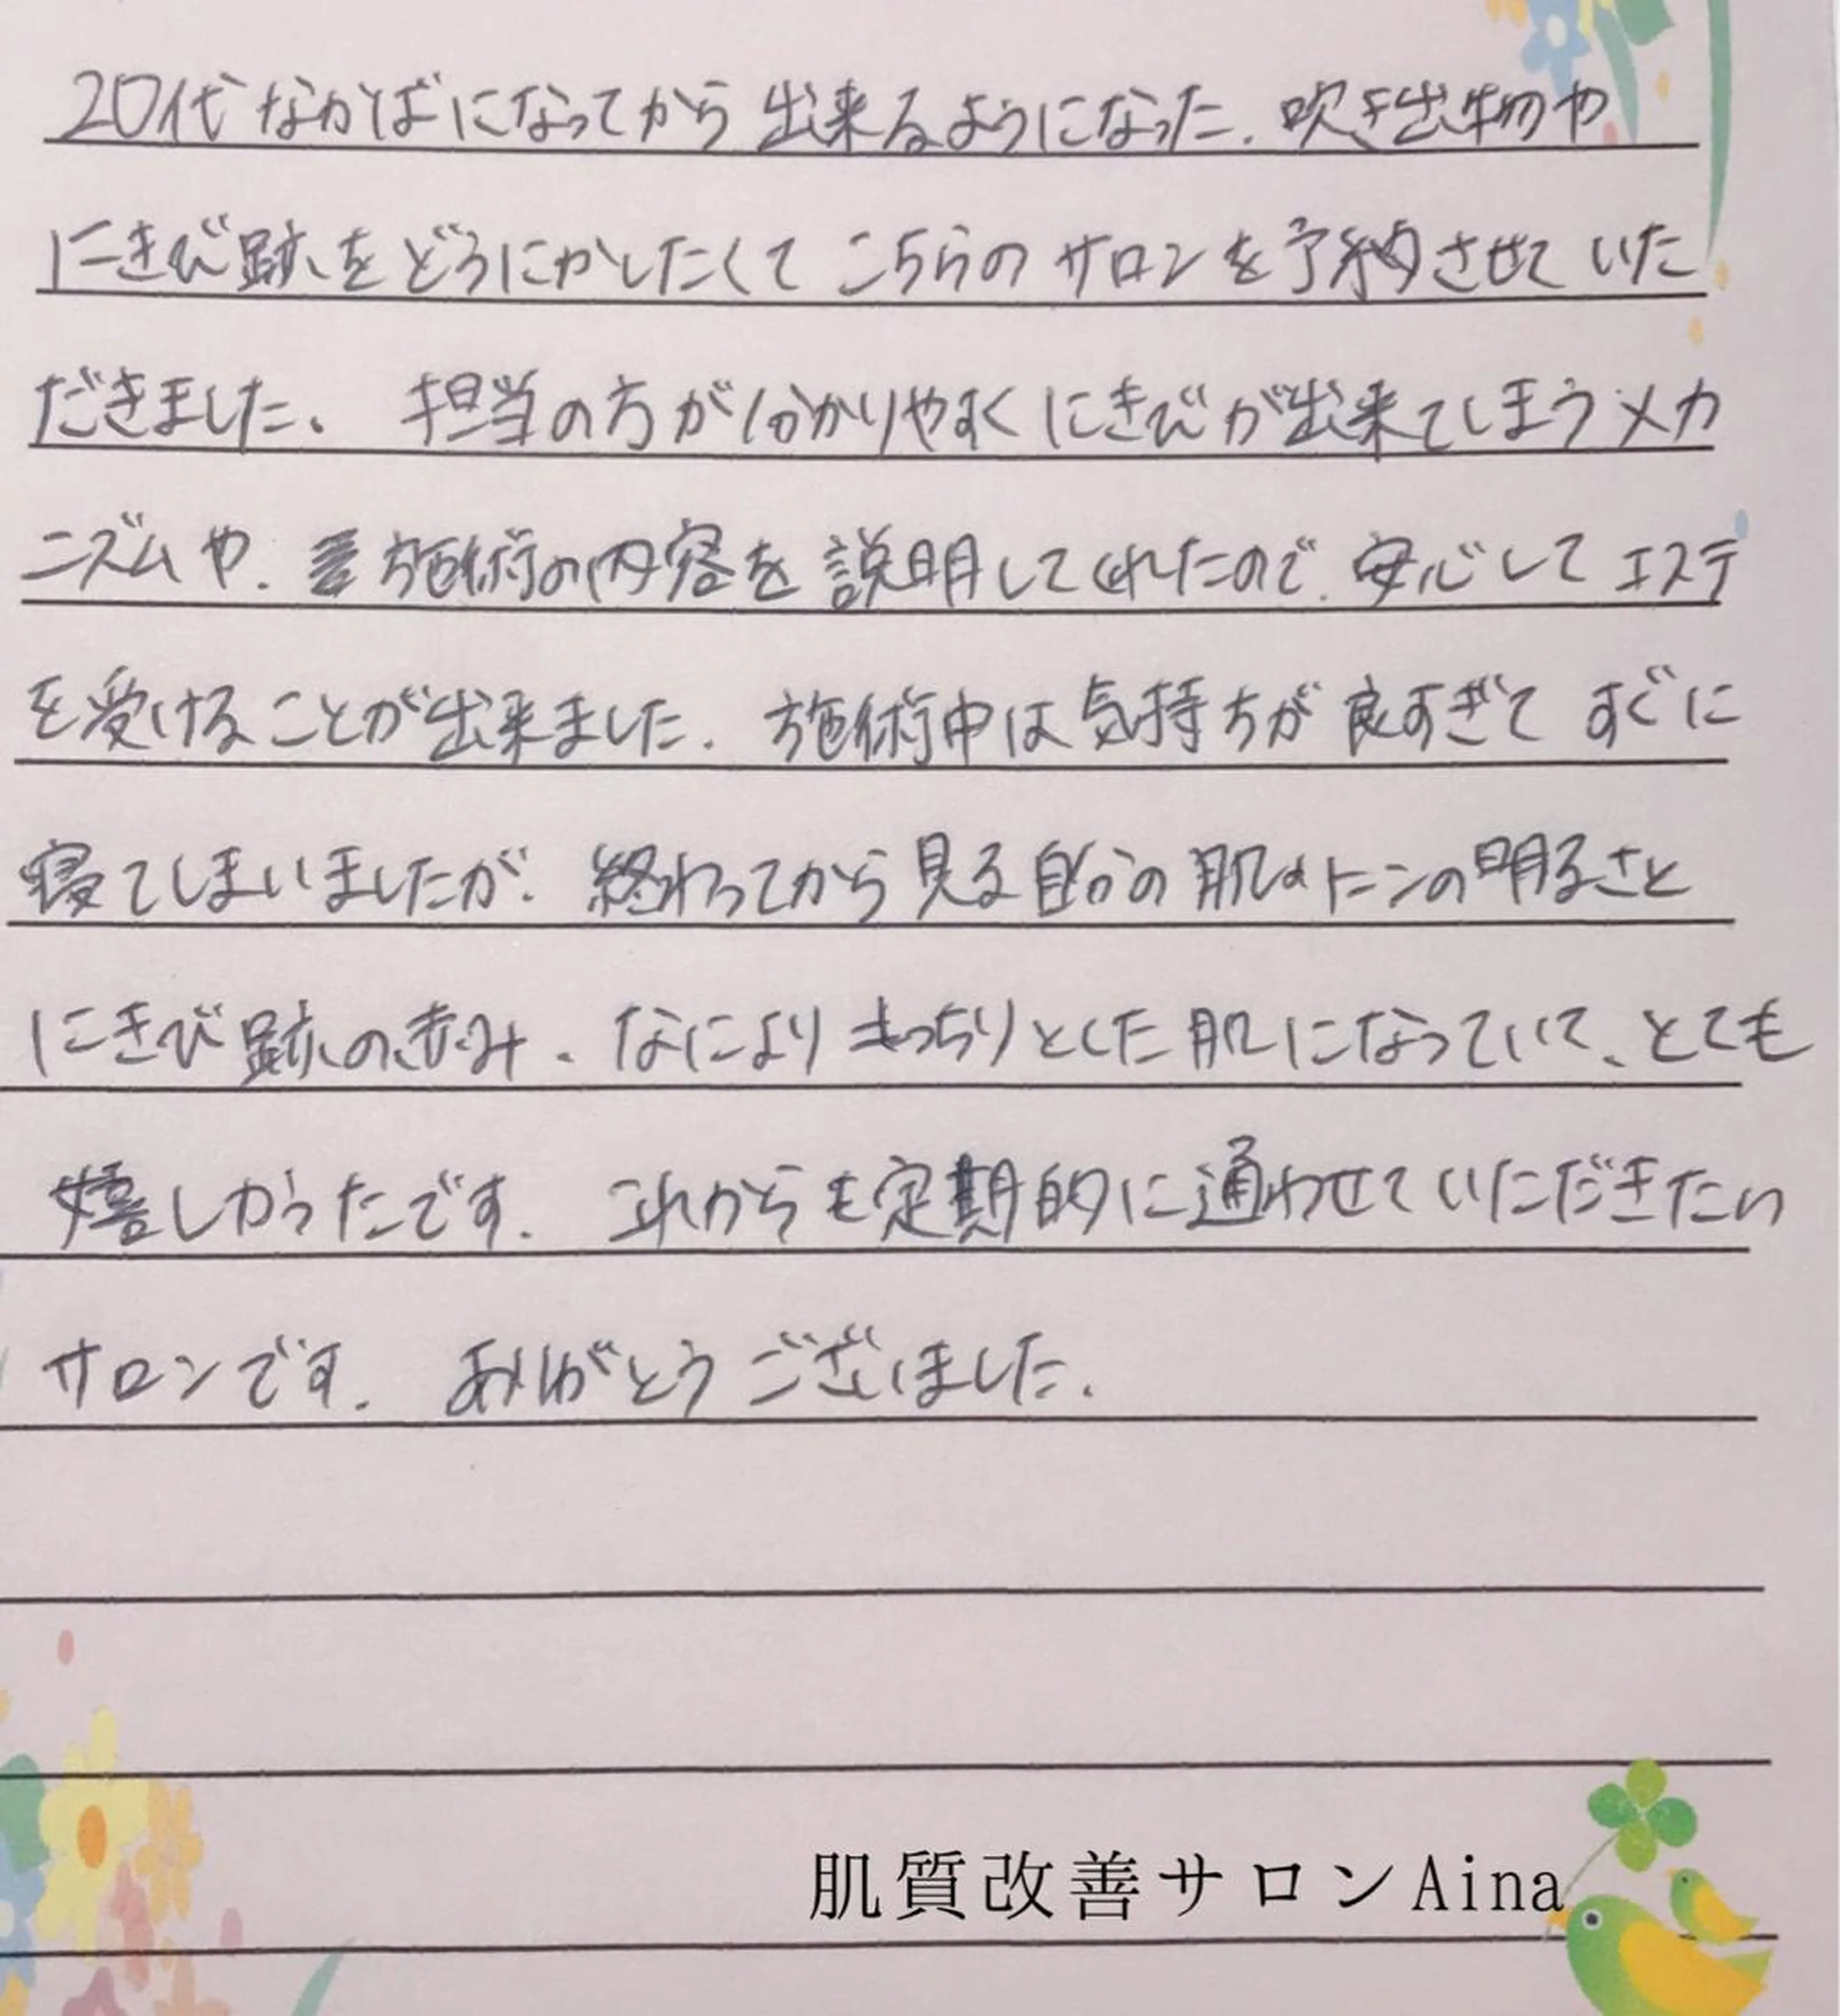 20代なかばになってから出来るようになった、吹き出物や
にきび跡をどうにかしたくてこちらのサロンを予約させていた
だきました。担当の方が分かりやすくにきびが出来てしまうメカ
ニズムや、施術の内容を説明してくれたので、安心してエステ
を受けることが出来ました。施術中は気持ちが良すぎてすぐに
寝てしまいましたが、終わってから見る自分の肌のトーンの明るさと
にきび跡の赤み、なによりもっちりとした肌になっていて、とても
嬉しかったです。これからも定期的に通わせていただきたい
サロンです。ありがとうございました。
肌質改善サロンAina